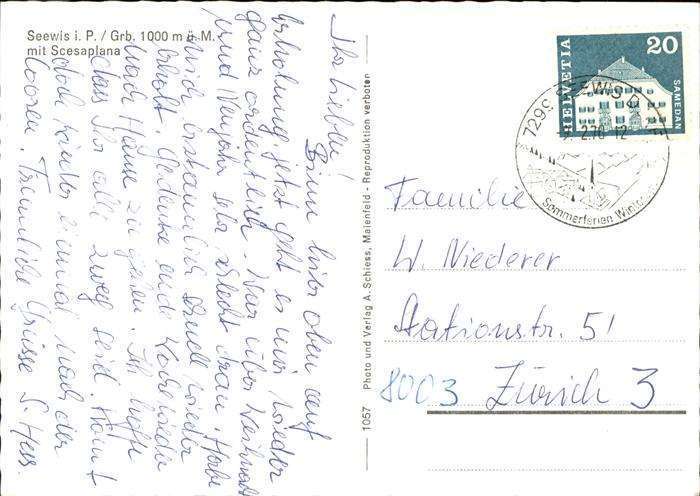 Seewis i. P. / Grb. 1000 m ü. M.
mit Scesaplana
Ihr Lieben!
Binn hier oben auf
Erholung, jetzt geht es mir wieder
ganz ordentlich. War über Weihnacht
und Neujahr sehr schlecht dran. Habe
mich erstaunlich schnell wieder
erholt gedenke ende
nach Hause zu gehen. Ich hoffe
dass Ihr alle zweg seid. Kommt
doch wieder einmal nach der
Looren. Freundliche Grüsse S. Hess.
1057 Photo und Verlag A. Schiess, Maienfeld - Reproduktion verboten
HELVETIA
20
SAMEDAN
7299 SEEWIS
2.70-12
Sommerferien Winter
Familie
W. Niederer
Stationsstr. 51
8003 Zürich 3